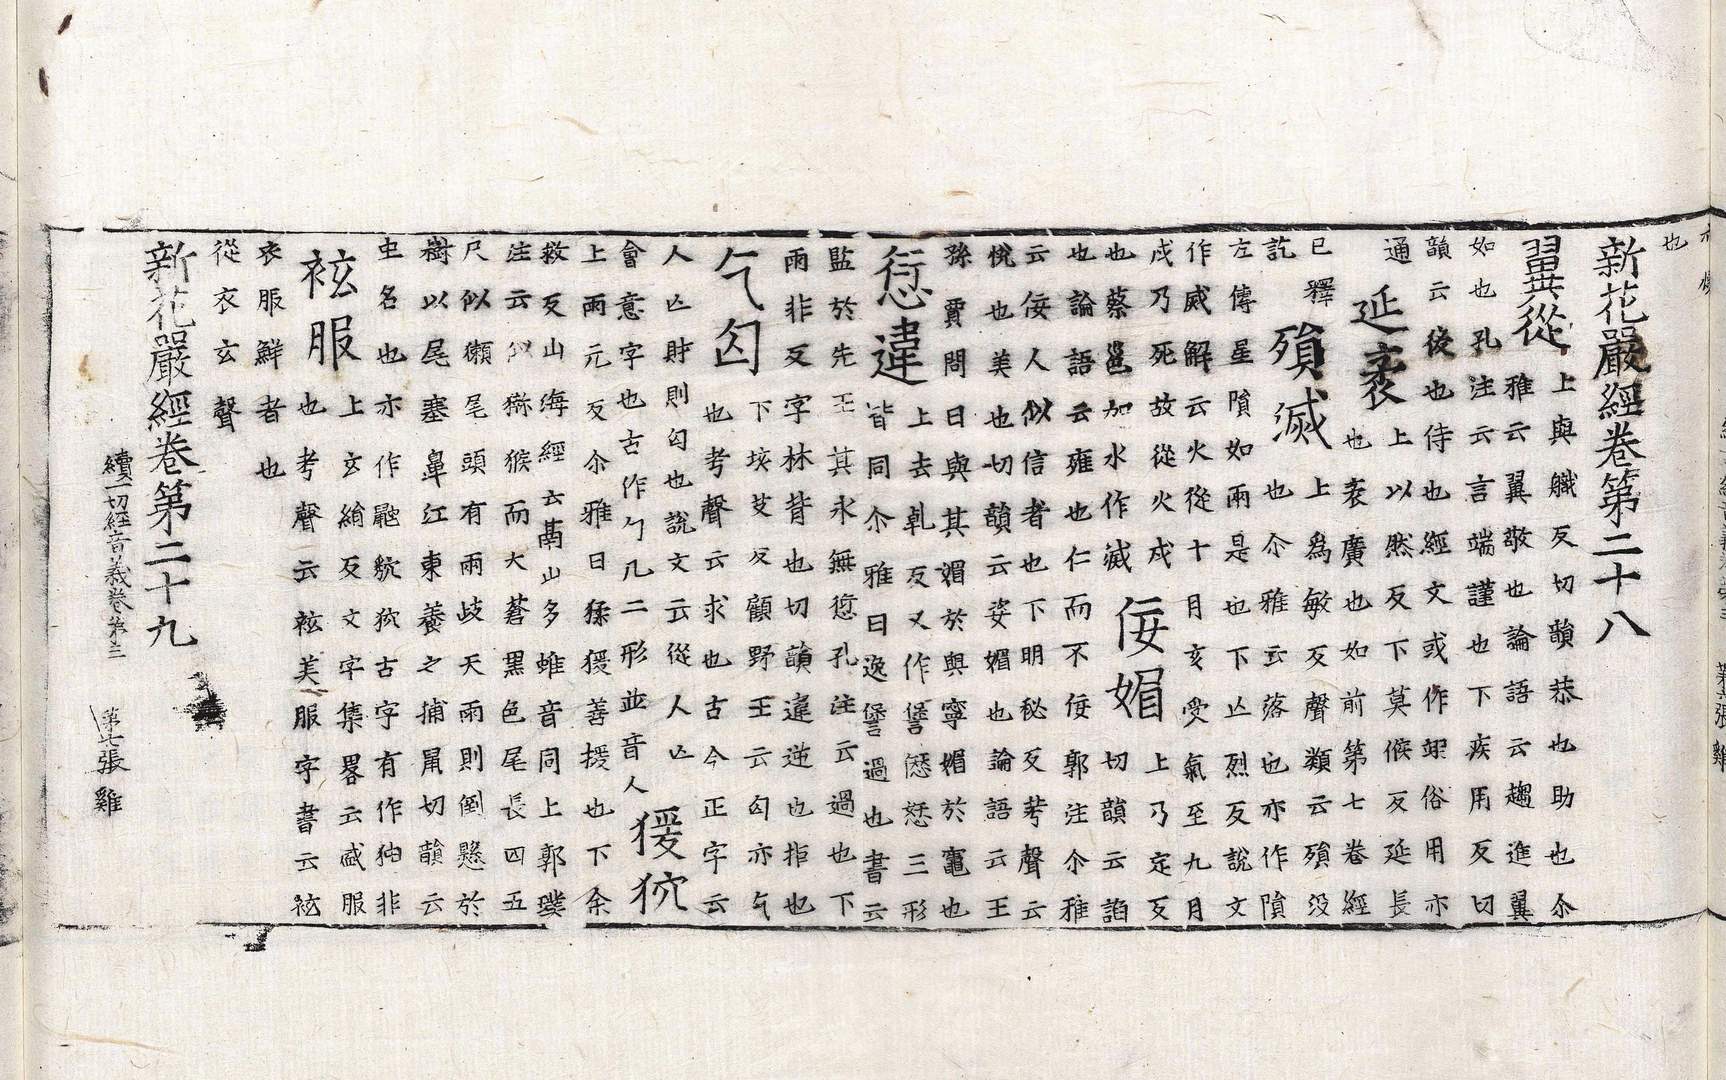 也
新花嚴經卷第二十八
翼從
上與軄反切韻恭也助也尒
雅云翼敬也論語云趨進翼
如也孔注云言端謹也下疾用反切
韻云後也侍也經文或作䎝俗用亦
通
延袤
上以然反下莫候反延長
也袤廣也如前第七卷經
已釋
訖
殞滅
上為敏反聲類云殞没
也尒雅云落也亦作隕
左傳星隕如雨是也下亾烈反說文
作烕解云火從十月亥受氣至九月
戌乃死故從火戌
也蔡邕加水作滅
佞媚
上乃定反
切韻云諂
也論語云雍也仁而不佞郭注尒雅
云佞人似信者也下明秘反考聲云
悅也美也切韻云姿媚也論語云王
孫賈問曰與其媚於與寧媚於竈也
愆違
上去乹反又作諐㥶三形
皆同尒雅曰逸諐過也書云
監於先王其永無愆孔注云過也下
雨非反字林背也切韻違逆也拒也
乞匃
下垓艾反顧野王云匃亦乞
也考聲云求也古今正字云
人亾財則匃也說文云從人亾
會意字也古作勹几二形並音人
猨狖
上雨元反尒雅曰猱猨善援也下余
救反山海經云鬲山多蜼音同上郭璞
注云似獼猴而大蒼黑色尾長四五
尺似獺尾頭有兩歧天雨則倒懸於
樹以尾塞鼻江東養之捕鼠切韻云
虫名也亦作鼬狖古字有作㹨非
袨服
上玄絢反文字集畧云盛服
也考聲云袨美服字書云袨
衣服鮮者也
從衣玄聲
新花嚴經卷第二十九
續一切經音義卷第三 第七張 雞